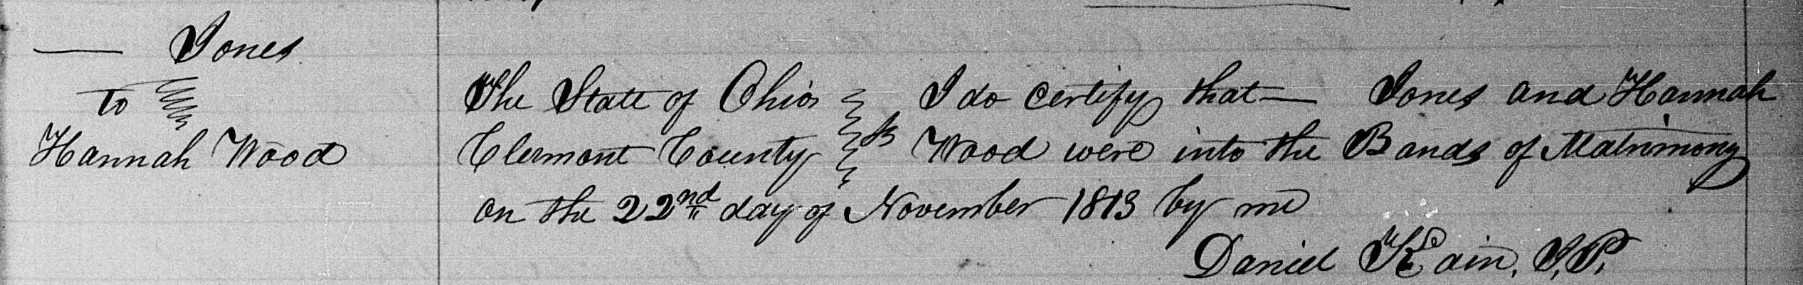 — Jones
to
Hannah Wood
The State of Ohio I do certify that — Jones and Hannah
Clermont County ss Wood were into the Bands of Matrimony
on the 22nd day of November 1813 by me
Daniel Kain, J.P.